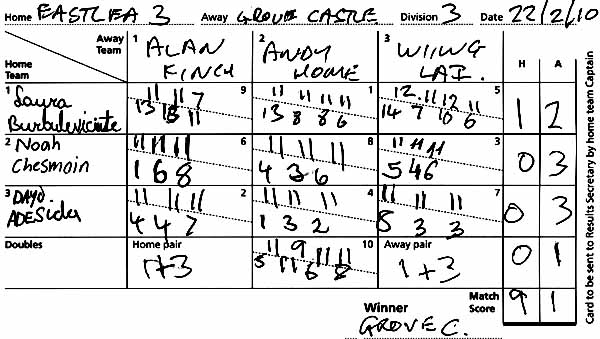 Home EASTLEA 3 Away GROVE CASTLE Division 3 Date 22/2/10
Away Team 1 ALAN FINCH 2 ANDY HOME 3 WIING LAI. H A
Home Team
1 Laura Burbuleviciute 9 1 5 1 2
11 11 7 11 11 11 11 12 11 12 11
13 13 11 13 8 8 6 14 7 10 6
2 Noah Chesmain 6 8 3 0 3
11 11 11 11 11 11 11 11
1 6 8 4 3 6 5 4 6
3 DAYO ADESida 2 4 7 0 3
11 11 11 11 11 11 11 11 11
4 4 7 1 3 2 8 3 3
Doubles Home pair 1+3 10 Away pair 1+3 0 1
11 9 11 11
5 11 6 8
Winner GROVE C. Match Score 9 1
Card to be sent to Results Secretary by home team Captain